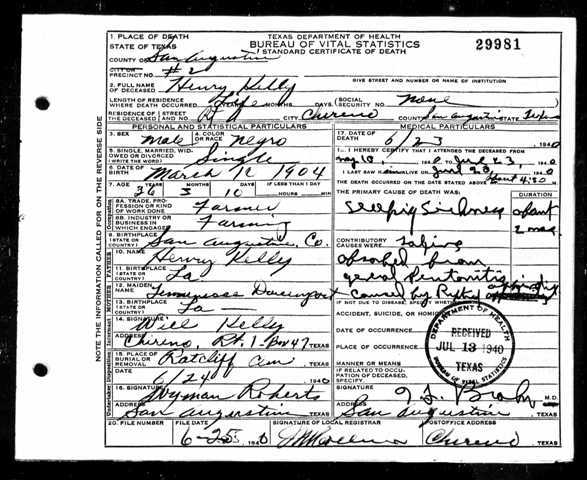 TEXAS DEPARTMENT OF HEALTH
BUREAU OF VITAL STATISTICS
STANDARD CERTIFICATE OF DEATH
29981
1. PLACE OF DEATH
STATE OF TEXAS
COUNTY OF San Augustine
CITY OR PRECINCT NO. #2
GIVE STREET AND NUMBER OR NAME OF INSTITUTION
2. FULL NAME OF DECEASED Henry Kelly
LENGTH OF RESIDENCE WHERE DEATH OCCURRED Life MONTHS DAYS SOCIAL SECURITY NO. none
RESIDENCE OF THE DECEASED STREET CITY, Chireno COUNTY San Augustine STATE Texas
PERSONAL AND STATISTICAL PARTICULARS
MEDICAL PARTICULARS
3. SEX Male 4. COLOR OR RACE Negro
5. SINGLE, MARRIED, WIDOWED OR DIVORCED (WRITE THE WORD) Single
6. DATE OF BIRTH March 1904
7. AGE 36 YEARS 3 MONTHS 10 DAYS IF LESS THAN 1 DAY HOURS MIN
8A. TRADE, PROFESSION OR KIND OF WORK DONE Farmer
8B. INDUSTRY OR BUSINESS IN WHICH ENGAGED Farming
9. BIRTHPLACE (STATE OR COUNTRY) San Augustine, Co.
FATHER
10. NAME Henry Kelly
11. BIRTHPLACE (STATE OR COUNTRY) La
MOTHER
12. MAIDEN NAME Davenport
13. BIRTHPLACE (STATE OR COUNTRY) La
14. SIGNATURE Will Kelly
ADDRESS Chireno, Rt. 1. Box 47 TEXAS
15. PLACE OF BURIAL OR REMOVAL Ratcliff Cem
6/24 1940
16. SIGNATURE Wyman Roberts
ADDRESS San Augustine TEXAS
17. DATE OF DEATH 6/23 1940
18. I HEREBY CERTIFY THAT I ATTENDED THE DECEASED FROM
10, 1940 TO June 23, 1940
I LAST SAW H ALIVE ON June 23 1940
THE DEATH OCCURRED ON THE DATE STATED ABOVE AT 4:20
THE PRIMARY CAUSE OF DEATH WAS: DURATION
Sleepig Sickness about 2 mos.
CONTRIBUTORY CAUSES WERE
from
caused by
IF NOT DUE TO DISEASE, SPECIFY WHETHER
ACCIDENT, SUICIDE, OR HOMICIDE
DATE OF OCCURRENCE
PLACE OF OCCURRENCE
MANNER OR MEANS
IF RELATED TO OCCUPATION OF DECEASED, SPECIFY
SIGNATURE M.D.
ADDRESS San Augustine TEXAS
DEPARTMENT OF HEALTH
RECEIVED
JUL 13 1940
TEXAS
BUREAU OF VITAL STATISTICS
20. FILE NUMBER FILE DATE 6-25 1940
SIGNATURE OF LOCAL REGISTRAR
POSTOFFICE ADDRESS Chireno
NOTE THE INFORMATION CALLED FOR ON THE REVERSE SIDE